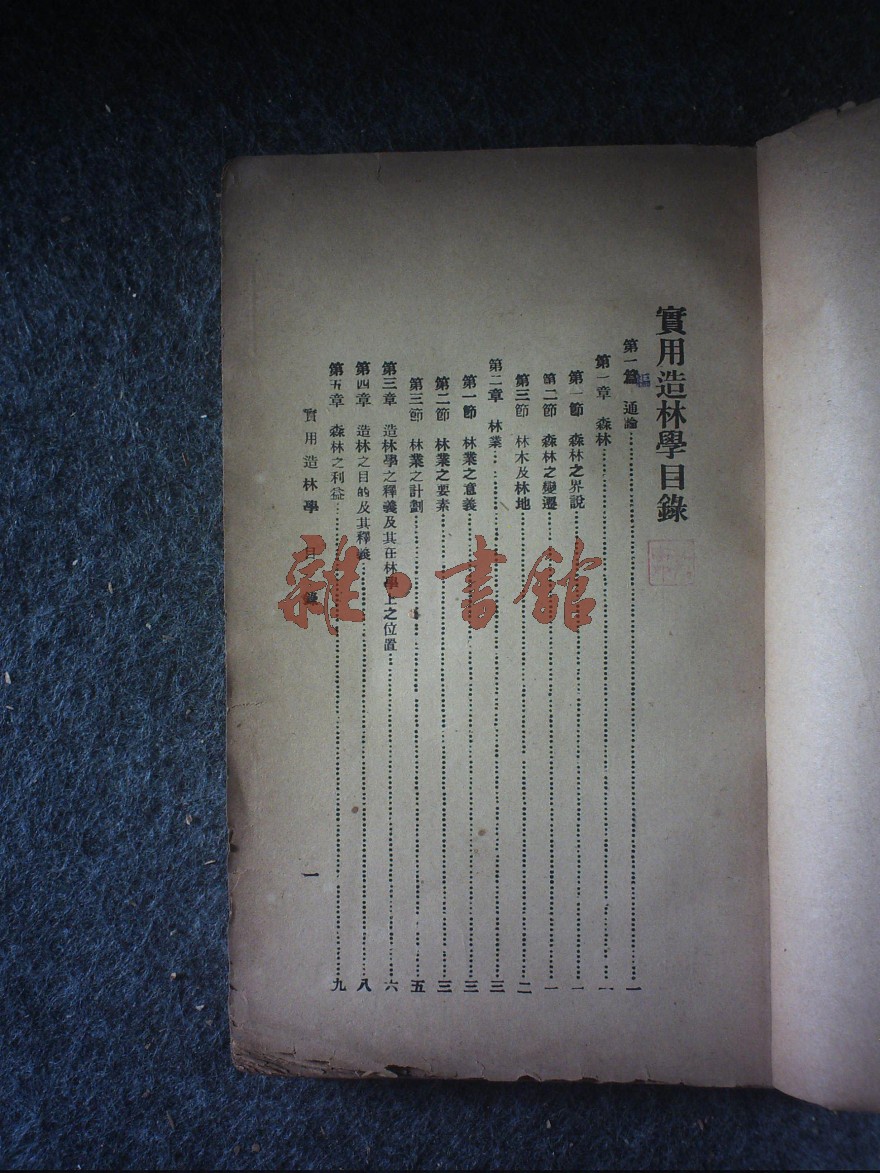 實用造林學目錄
第一篇 通論……一
編
第一章 森林……一
第一節 森林之界說……一
第二節 森林之變遷……一
第三節 林木及林地……二
第二章 林業……三
第一節 林業之意義……三
第二節 林業之要素……三
第三節 林業之計劃……五
第三章 造林學之釋義及其在林學上之位置……六
第四章 造林之目的及其釋義……八
第五章 森林之利益……九
實用造林學 目錄 一
雜·書館